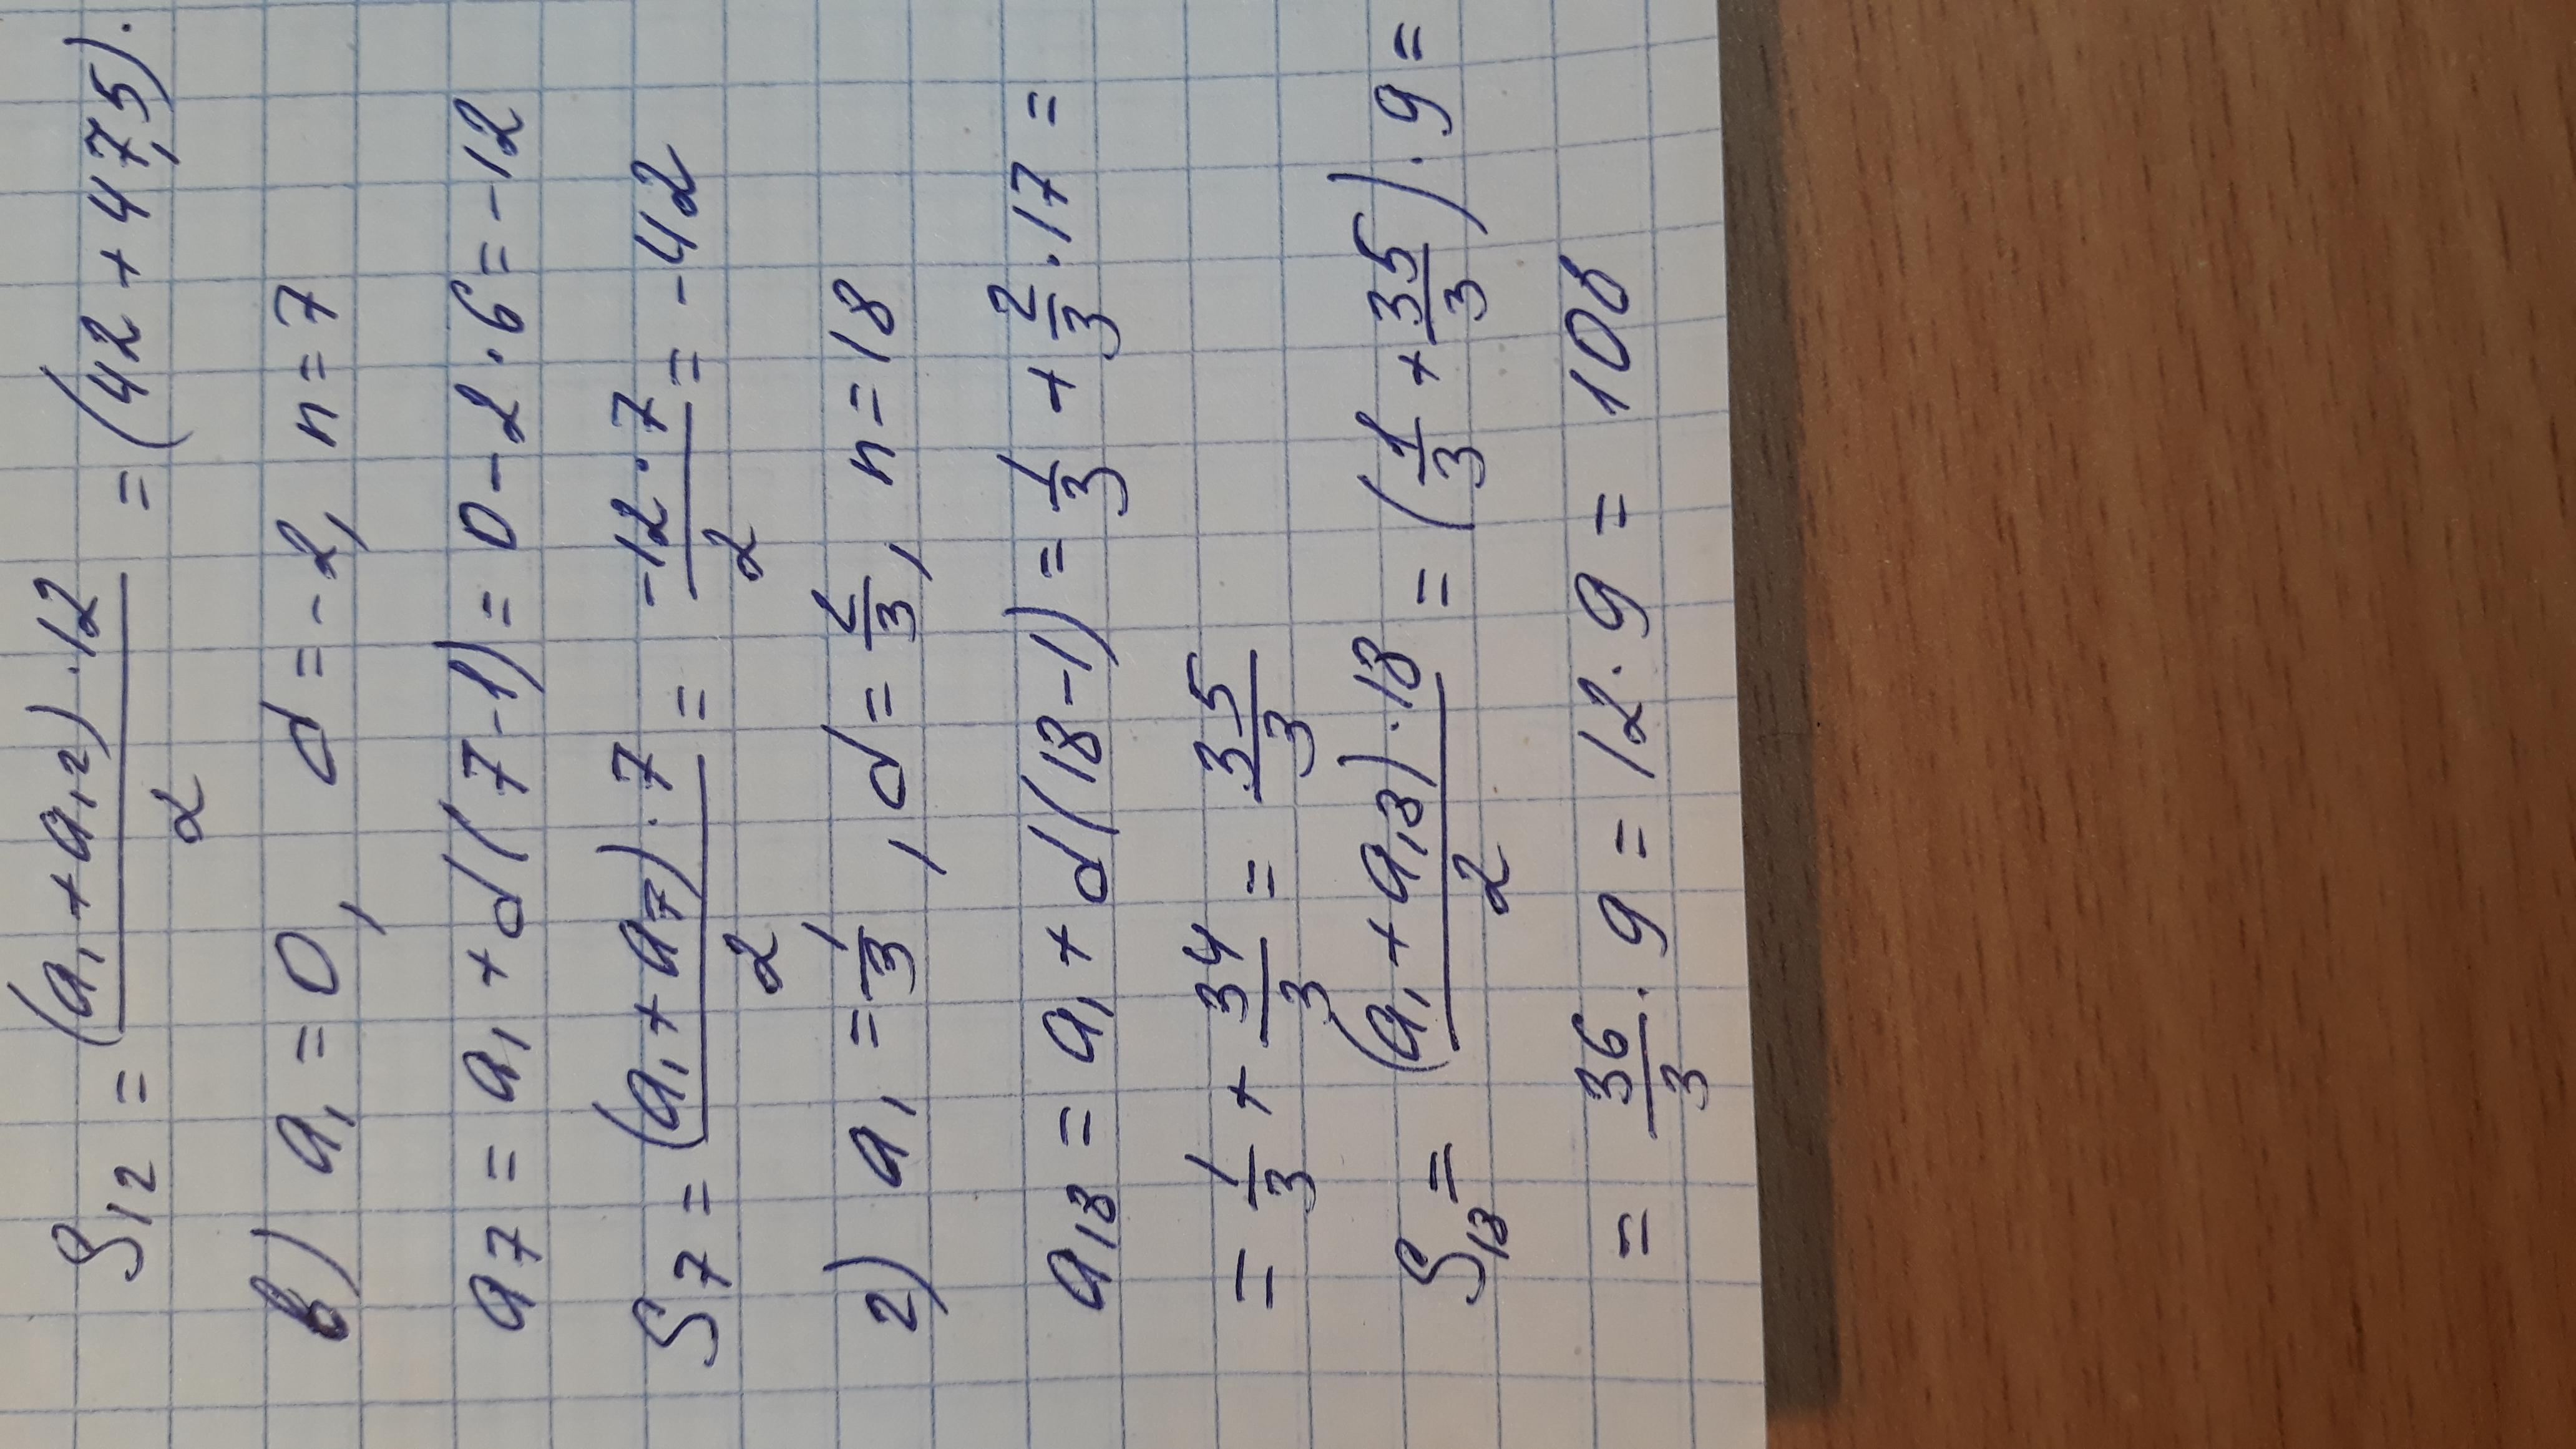 S₁₂ = (a₁ + a₁₂) · 12 / 2 = (42 + 47,5) ·
в) a₁ = 0, d = -2, n = 7
a₇ = a₁ + d(7-1) = 0 - 2 · 6 = -12
S₇ = (a₁ + a₇) · 7 / 2 = -12 · 7 / 2 = -42
г) a₁ = 1/3, d = 2/3, n = 18
a₁₈ = a₁ + d(18-1) = 1/3 + 2/3 · 17 =
= 1/3 + 34/3 = 35/3
S₁₈ = (a₁ + a₁₈) · 18 / 2 = (1/3 + 35/3) · 9 =
= 36/3 · 9 = 12 · 9 = 108